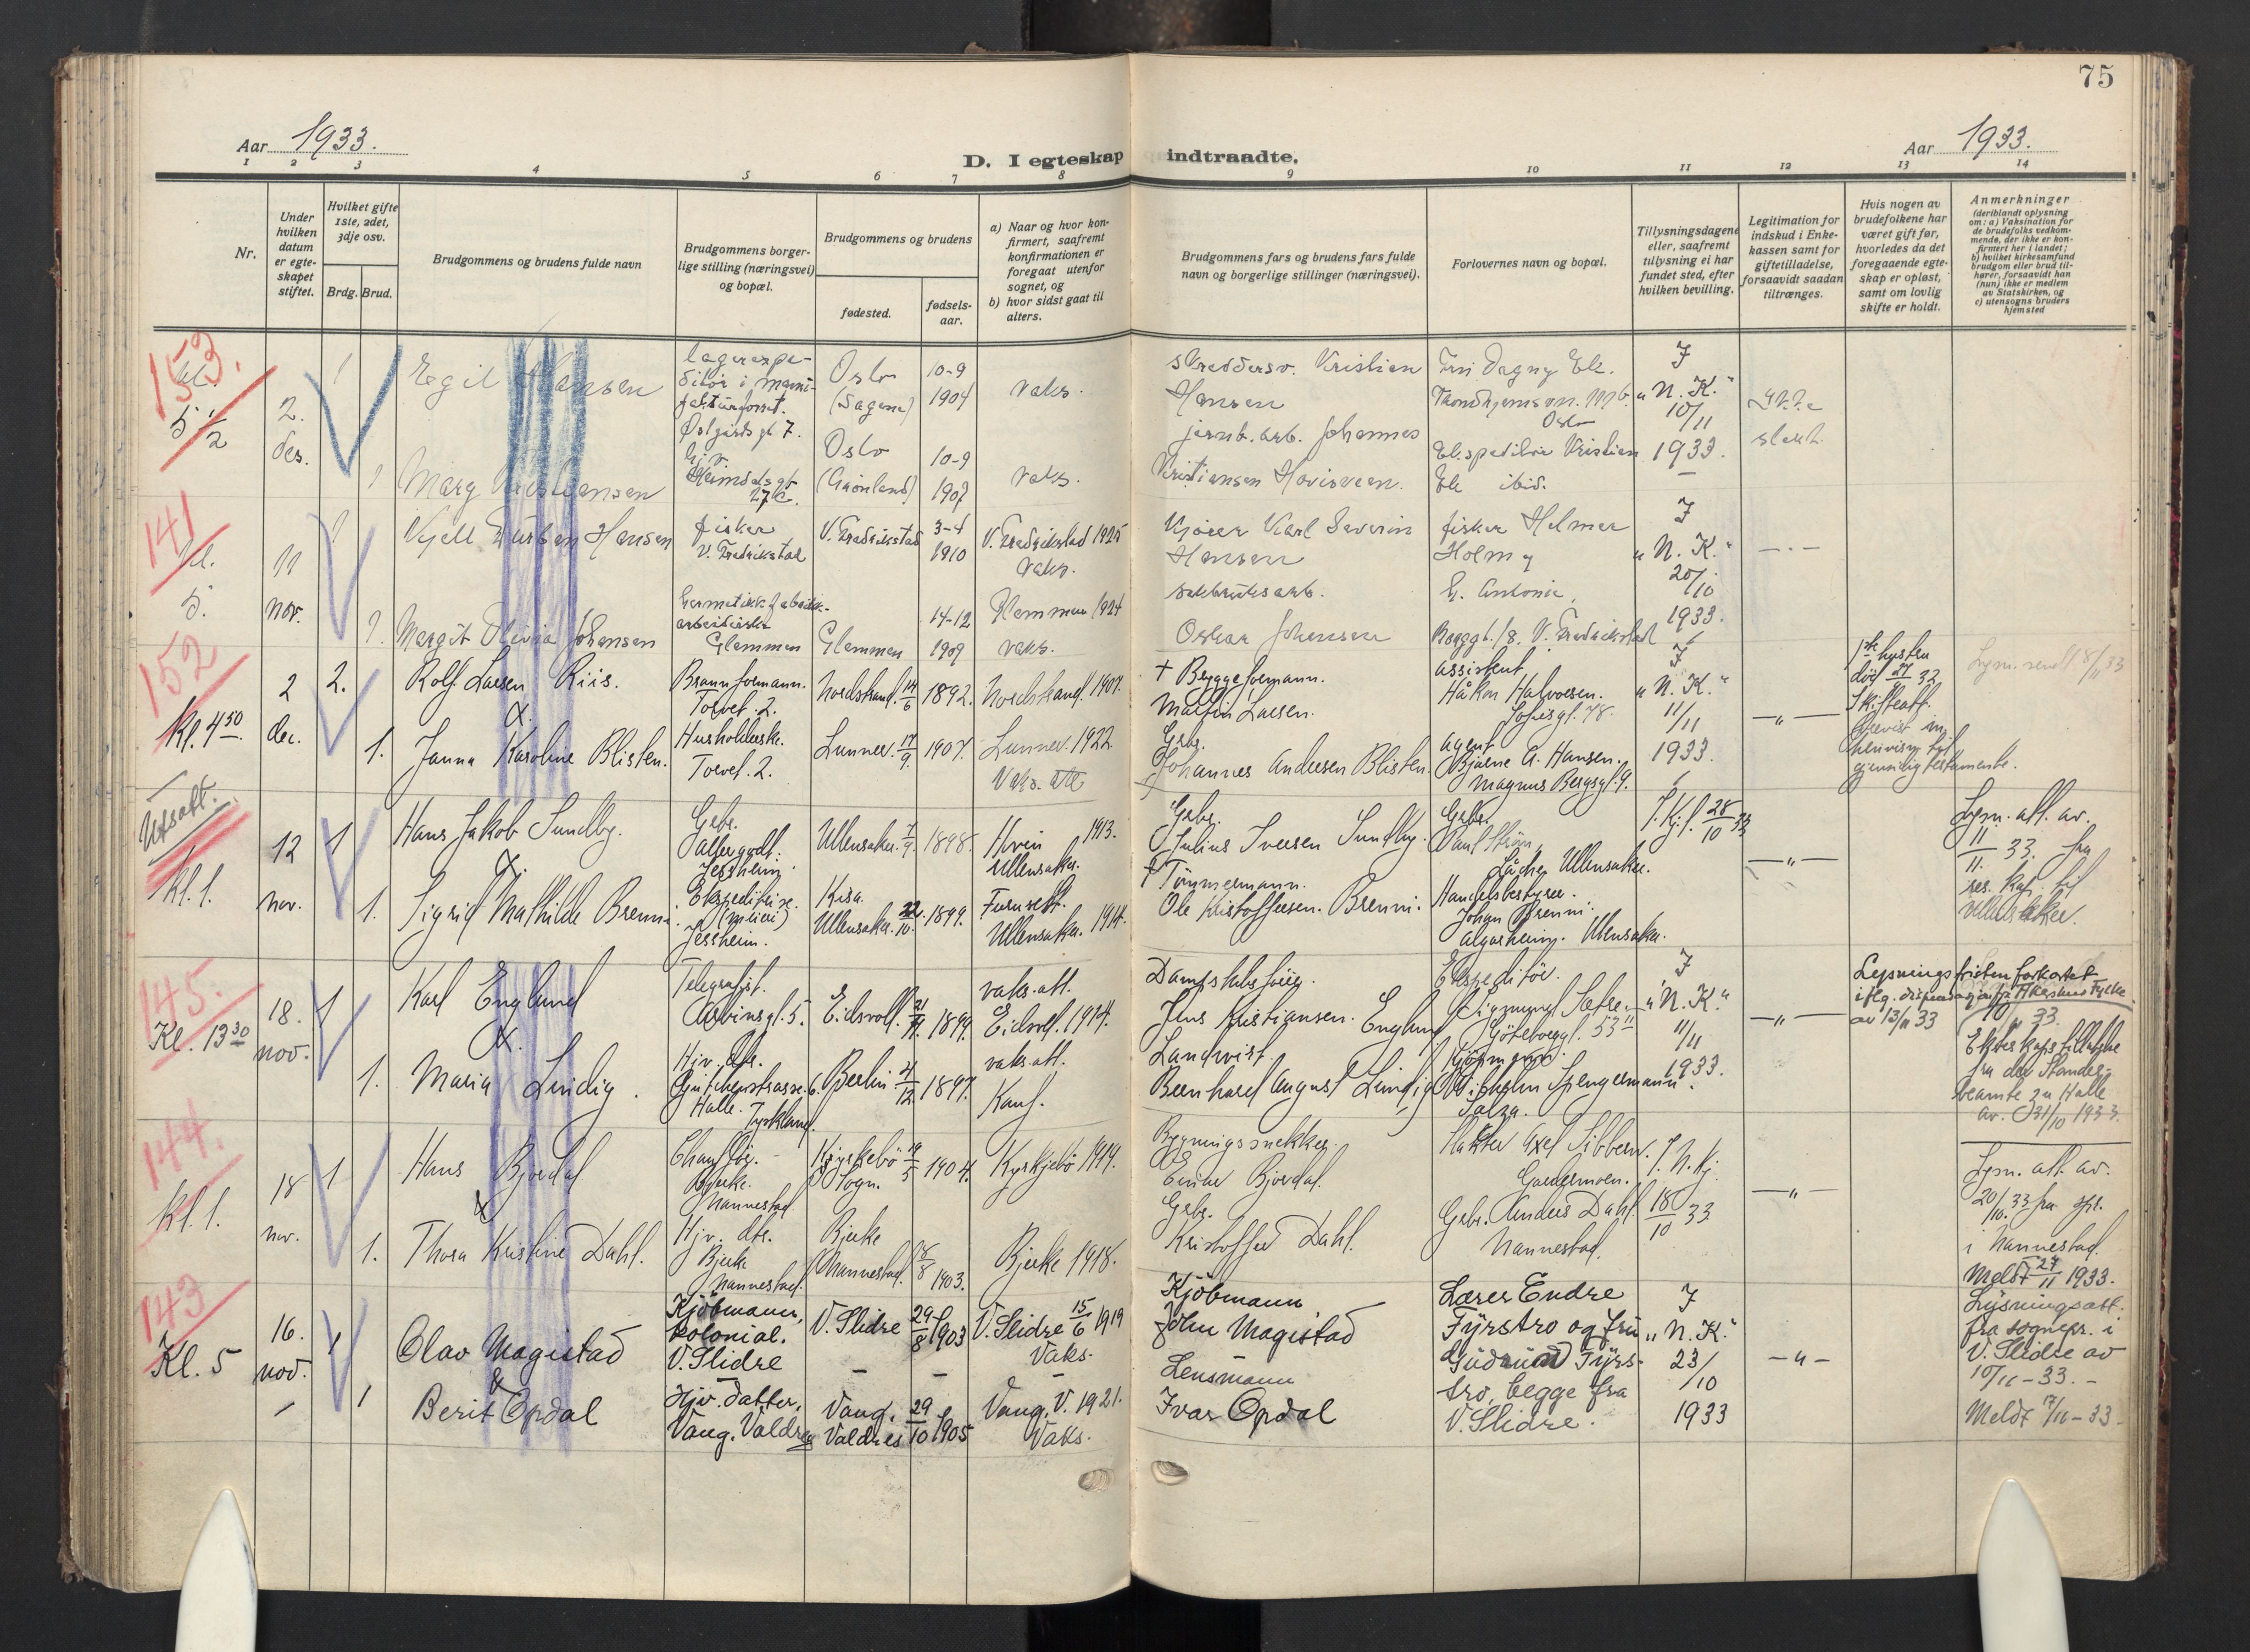 75
Aar 1933.
D. I egteskap indtraadte.
Aar 1933.
1 2 3 4 5 6 7 8 9 10 11 12 13 14
Nr.
Under hvilken datum er egteskapet stiftet.
Hvilket gifte 1ste, 2det, 3dje osv.
Brdg. Brud.
Brudgommens og brudens fulde navn
Brudgommens borgerlige stilling (næringsvei) og bopæl.
Brudgommens og brudens
fødested.
fødselsaar.
a) Naar og hvor konfirmert, saafremt konfirmationen er foregaat utenfor sognet, og
b) hvor sidst gaat til alters.
Brudgommens fars og brudens fars fulde navn og borgerlige stillinger (næringsvei).
Forlovernes navn og bopæl.
Tillysningsdagene eller, saafremt tillysning ei har fundet sted, efter hvilken bevilling.
Legitimation for indskud i Enkekassen samt for giftetilladelse, forsaavidt saadan tiltrænges.
Hvis nogen av brudefolkene har været gift før, hvorledes da det foregaaende egteskap er opløst, samt om lovlig skifte er holdt.
Anmerkninger (deriblandt oplysning om: a) Vaksination for de brudefolks vedkommende, der ikke er konfirmert her i landet; b) hvilket kirkesamfund brudgom eller brud tilhører, forsaavidt han (hun) ikke er medlem av Statskirken, og c) utensogns bruders hjemsted
153.
kl. 5 1/2
2. des.
Egil Hansen
Østgårds gt. 7.
Oslo (Sagene)
10-9 1904
vaks.
Skreddersv. Kristian Hansen
Fru Dagny Ek.
Oslo
I "N. K." 10/11 1933.
slekt
Marg Kristiansen
Heimdalsgt 27c.
Oslo (Grønland)
10-9 1907
vaks.
jernb. arb. Johannes Kristiansen
Ekspeditør Kristian Ek ibid.
141
kl. 5.
11 nov.
Kjell Hansen
fisker V. Fredrikstad
V. Fredrikstad
3-4 1910
V. Fredrikstad 1925 vaks.
Kjører Karl Severin Hansen
fisker Helmer Holm
I "N. K." 20/10 1933.
Margit Olivia Johansen
Glemmen
Glemmen
14-12 1909
Glemmen 1924 vaks.
Oskar Johansen
V. Fredrikstad
152
Kl. 4 50
2 dec.
2.
Rolf Larsen Riis.
&
Brannformann. Torvet. 2.
Nordstrand. 14/6 1892.
Nordstrand. 1907.
† Byggeformann. Martin Larsen.
assistent Håkon Halvorsen. Sofiesgt. 78.
I "N. K." 11/11 1933.
1ste hustru død 27/ 32
Skifteatt.
gjensidig testamente.
Lysn. sendt 8/11 33
1.
Janna Karoline Blisten.
Husholderske. Torvet. 2.
Lunner. 17/9 1907.
Lunner. 1922. Vaks. att
Grbr. Johannes Andersen Blisten.
agent Bjarne A. Hansen. Magnus Bergsgt. 9.
Utsatt.
Kl. 1.
12 nov.
1
Hans Jakob Sundby.
&
Grbr. Jessheim.
Ullensaker. 7/9 1898.
Hovin 1913. Ullensaker.
Grbr. Julius Iversen Sundby.
Grbr. Paul Strøm, Ullensaker.
28/10 33
Lysn. att. av. 11/11. 33. fra res. kap. til Ullensaker.
1.
Sigrid Mathilde Brenni.
Ekspeditrise. Jessheim.
Kisa Ullensaker. 22/10 1899.
Furuset. Ullensaker. 1914.
† Tømmermann. Ole Kristoffersen. Brenni.
Handelsbestyrer. Johan Brenni. Algarheim. Ullensaker.
145.
Kl. 13 30
18. nov.
1
Karl Englund
&
Telegrafist. Arbinsgt. 5.
Eidsvoll. 1899.
vaks. att. Eidsvoll. 1914.
Jens Kristiansen. Englund
Ekspeditør. Sigmund Göteborggt. 53
I "N. K." 11/11 1933.
Lysningsfristen forkortet iflg. dispensasjon fra Akershus Fylke av 13/11 33
Ekteskapstillatelse fra der Standesbeamte zu Halle av. 31/10 1933.
1.
Maria Lindig.
Hjv. dtr. Halle. Tyskland.
Berlin 4/12 1897.
vaks. att. Konf.
Landwirt. Bernhard August Lindig
Wilhelm Spengemann. Salza.
144.
Kl. 1.
18 nov.
1
Hans Bjordal
&
Chauffør. Bjerke. Nannestad.
Kyrkjebø Sogn. 19/5 1904.
Kyrkjebø 1919.
Bygningssnekker. Einar Bjordal.
Slakter Axel Sibbern. Gardermoen.
18/10 33
Lysn. att. av. 20/10. 33 fra spr. i Nannestad.
Meldt 27/11 1933.
1.
Thora Kristine Dahl.
Hjv. dtr. Bjerke Nannestad.
Bjerke Nannestad. 18/8 1903.
Bjerke 1918.
Grbr. Kristoffer Dahl.
Grbr. Anders Dahl Nannestad.
143
Kl. 5
16. nov.
1
Olav Magistad
&
Kjøbmann, kolonial. V. Slidre
V. Slidre 29/8 1903
V. Slidre 15/6 1919 Vaks.
Kjøbmann John Magistad
Lærer Endre Fyrstro og fru Gudrun Fyrstro, begge fra V. Slidre.
I "N. K." 23/10 1933
Lysningsatt. fra sognepr. i V. Slidre av 10/11-33.-
Meldt 17/11-33.
1
Berit Opdal
Hjv. datter, Vang. Valdres
Vang, Valdres 29/10 1905
Vang. V. 1921. Vaks.
Lensmann Ivar Opdal